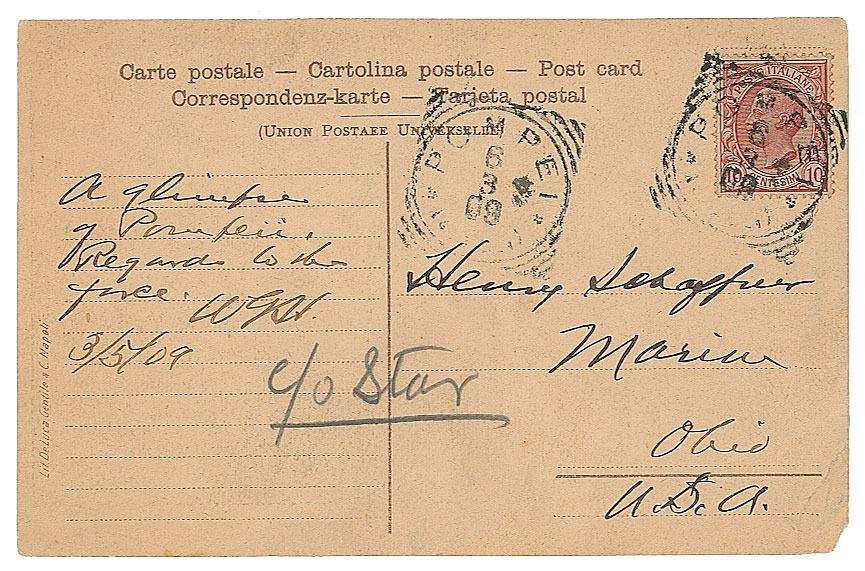 Carte postale — Cartolina postale — Post card
Correspondenz-karte — Tarjeta postal
(UNION POSTAEE UNIVERSELLE)
POSTE ITALIANE
10 CENTESIMI 10
POMPEI
6
3
09
POMPEI
6
3
09
A glimpse
of Pompeii.
Regards to the
force. WGH
3/5/09
Henry Schaffner
Marion
Ohio
U.S.A.
c/o Star
Lit. De Luca Gentile & C. Napoli